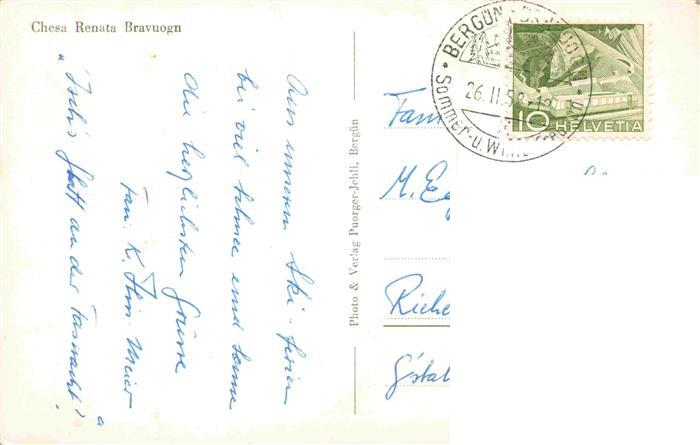 Chesa Renata Bravuogn
Aus unseren Ski-ferien
bei viel Schnee und Sonne
die herzlichsten Grüsse
Fam. K.
"Isch's glatt an der Fasnacht?"
Photo & Verlag Puorger-Jehli, Bergün
BERGÜN BRAVUOGN
26.II.58
Sommer-u.Win
10 HELVETIA
Fam
M. Eg
Riche
G'stal